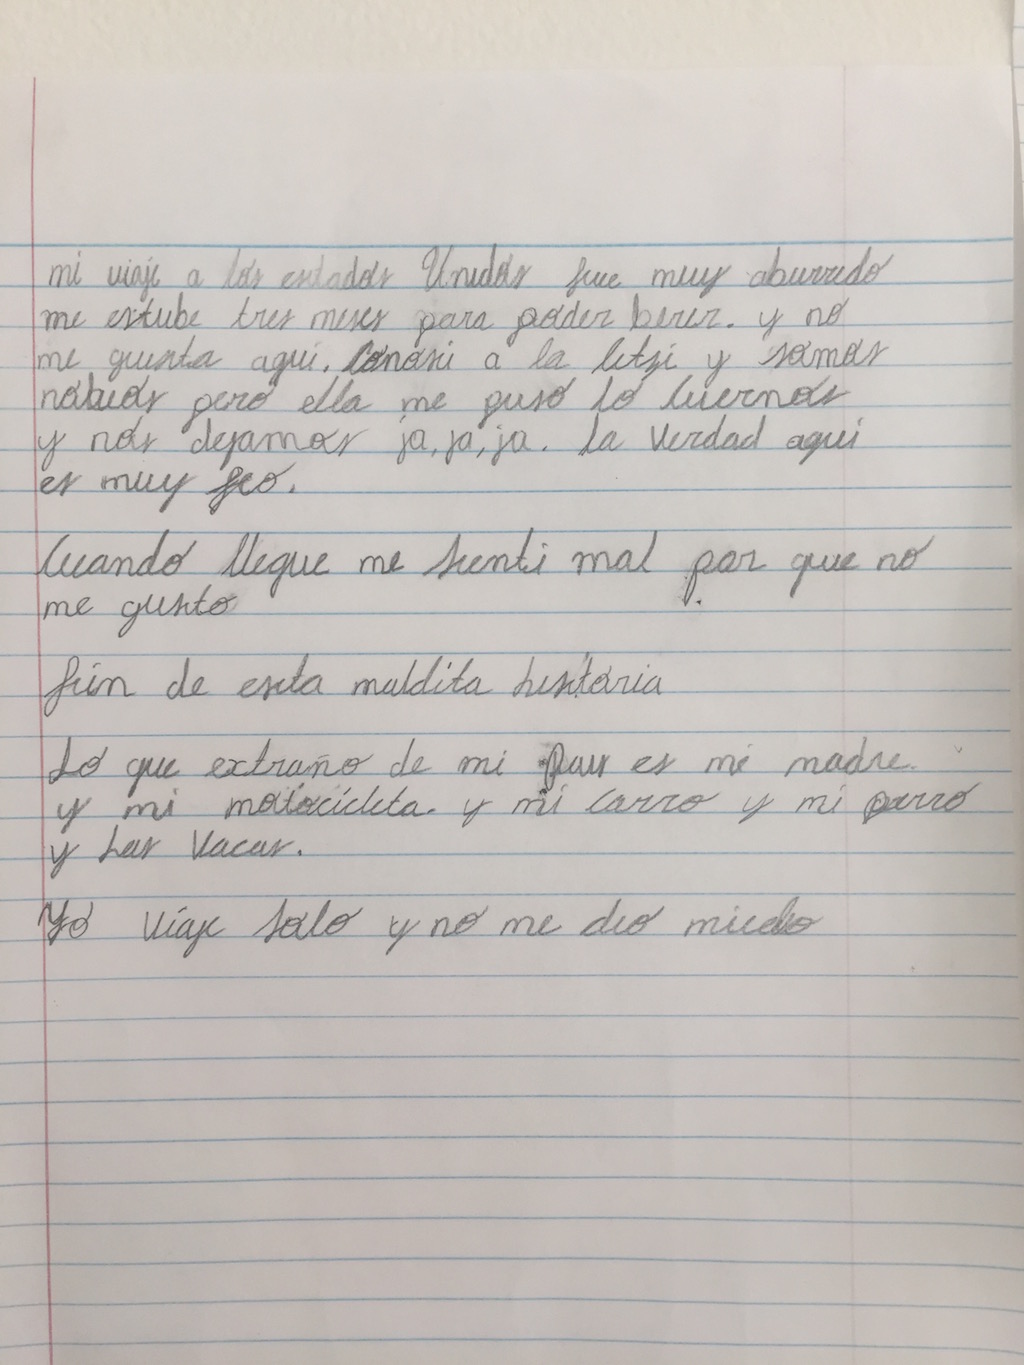 mi viaje a los estados Unidos fue muy aburrido
me estube tres meses para poder benir. y no
me gusta aqui. Conosi a la litzi y somos
nobios pero ella me puso lo cuernos
y nos dejamos ja, ja, ja. la verdad aqui
es muy feo.
Cuando llegue me senti mal por que no
me gusto
fin de esta maldita historia
Lo que extraño de mi pais es mi madre.
y mi motocicleta. y mi carro y mi perro
y las vacas.
Yo viaje solo y no me dio miedo